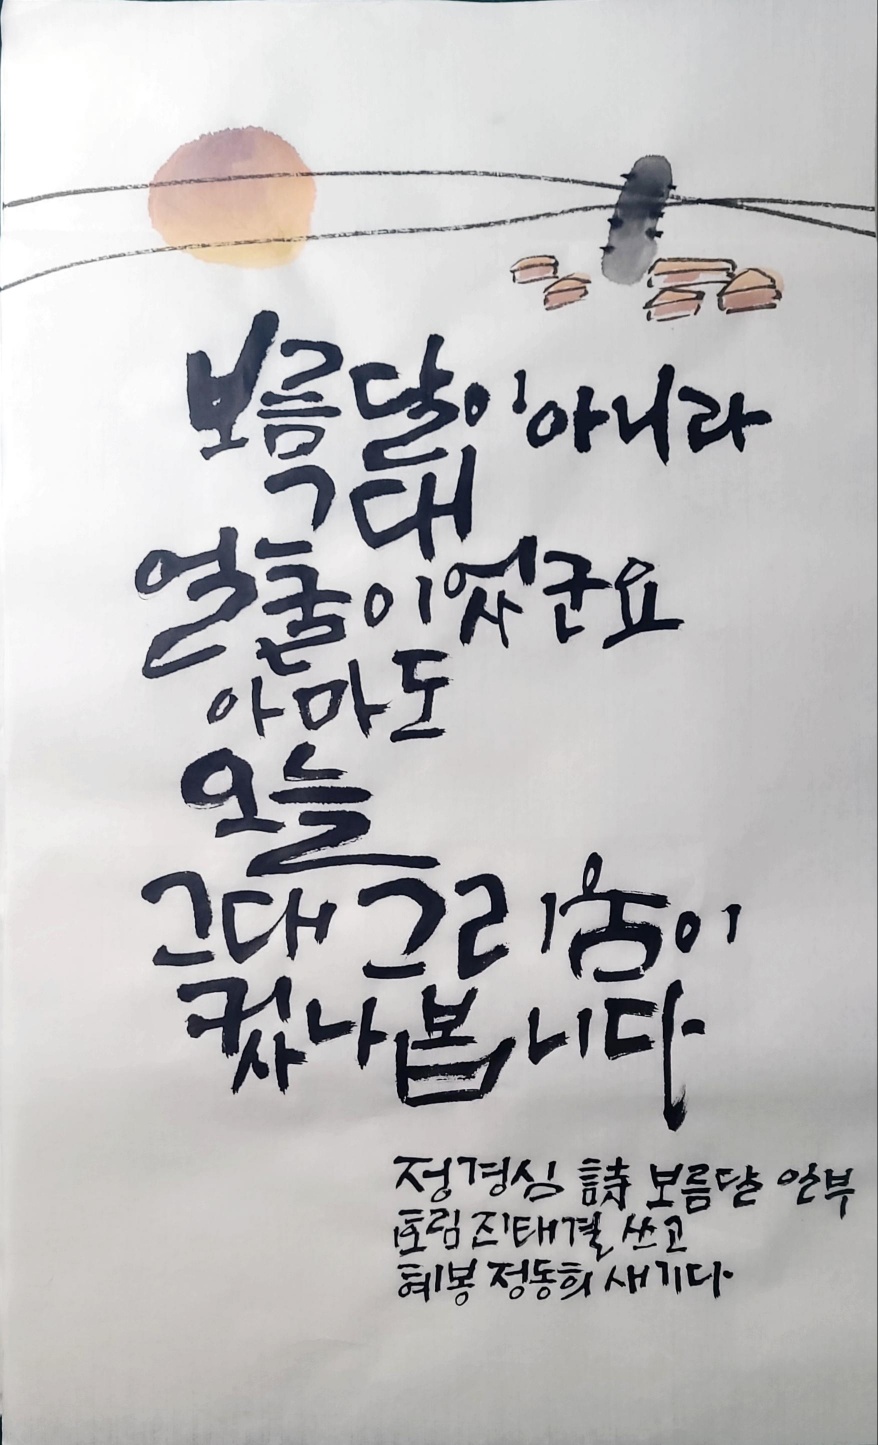 보름달이 아니라
그대
얼굴이었군요
아마도
오늘
그대 그리움이
컸나 봅니다
정경심 詩 보름달 일부
효림 진태결 쓰고
혜봉 정동희 새기다